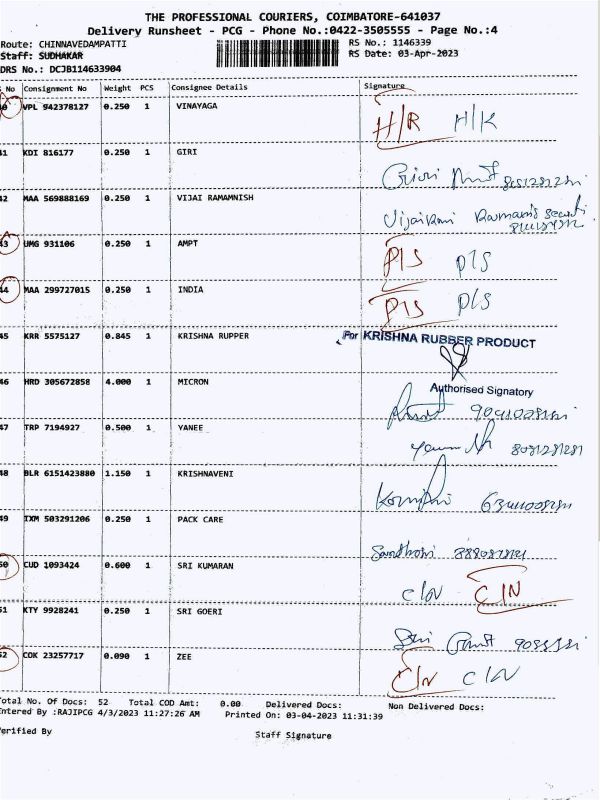 THE PROFESSIONAL COURIERS, COIMBATORE-641037
Delivery Runsheet - PCG - Phone No.:0422-3505555 - Page No.:4
Route: CHINNAVEDAMPATTI RS No.: 1146339
Staff: SUDHAKAR RS Date: 03-Apr-2023
DRS No.: DCJB114633904
No Consignment No Weight PCS Consignee Details Signature
VPL 942378127 0.250 1 VINAYAGA H/R H/K
41 KDI 816177 0.250 1 GIRI
42 MAA 569888169 0.250 1 VIJAI RAMAMNISH
43 UMG 931106 0.250 1 AMPT P/S P/S
44 MAA 299727015 0.250 1 INDIA P/S P/S
45 KRR 5575127 0.845 1 KRISHNA RUPPER For KRISHNA RUBBER PRODUCT
Authorised Signatory
46 HRD 305672858 4.000 1 MICRON
47 TRP 7194927 0.500 1 YANEE
48 BLR 6151423880 1.150 1 KRISHNAVENI
49 IXM 503291206 0.250 1 PACK CARE
50 CUD 1093424 0.600 1 SRI KUMARAN C/N C/N
51 KTY 9928241 0.250 1 SRI GOERI
52 COK 23257717 0.090 1 ZEE C/N C/N
Total No. Of Docs: 52 Total COD Amt: 0.00 Delivered Docs: Non Delivered Docs:
Entered By :RAJIPCG 4/3/2023 11:27:26 AM Printed On: 03-04-2023 11:31:39
Verified By Staff Signature